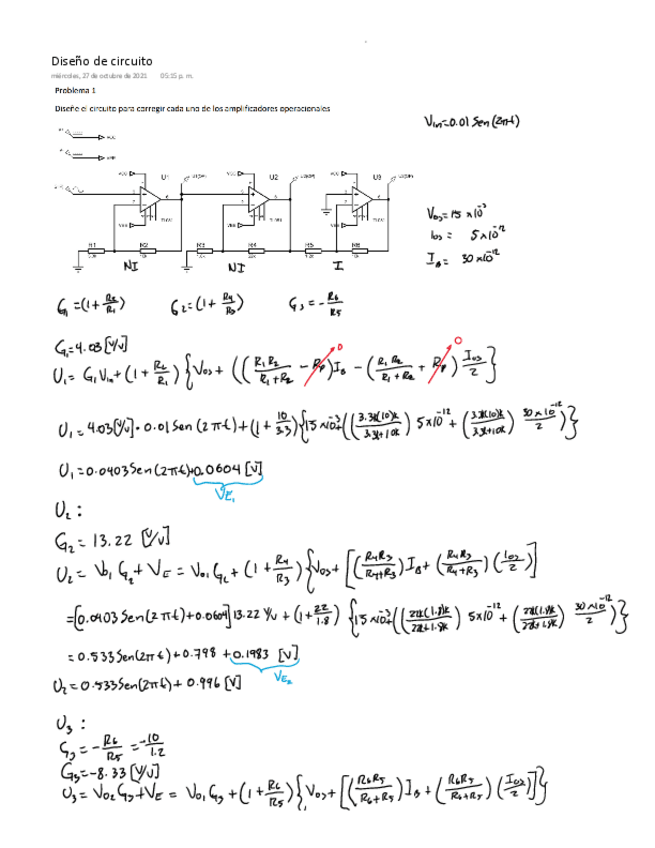 Diseño de circuito
miércoles, 27 de octubre de 2021 05:15 p. m.
Problema 1
Diseñe el circuito para corregir cada uno de los amplificadores operacionales
Vin=0.01 Sen(2πt)
VCC
VEE
VCC U1 VCC U2 U3
VEE VEE
R1 R2 R3 R4 R5 R6
NI NI I
Vos=15 x10^-3
Ios= 5x10^-12
I_B= 30x10^-12
G1=(1+R2/R1) G2=(1+R4/R3) G3=-R6/R5
G1=4.03[V/V]
U1= G1Vin+(1+R2/R1){Vos+((R1R2/(R1+R2) - Rp)I_B - (R1R2/(R1+R2) + Rp)Ios/2} 0 0
U1=4.03[V/V]·0.01 Sen(2πt)+(1+10/3.3){15x10^-3+((3.3k(10)k/3.3k+10k) 5x10^-12+(3.3k(10)k/3.3k+10k) 30x10^-12/2)}
U1=0.0403Sen(2πt)+0.0604[V]
VE1
U2:
G2=13.22 [V/V]
U2= Vo1G2+VE=Vo1G2+(1+R4/R3){Vos+[(R4R3/(R4+R3))I_B+(R4R3/(R4+R3))(Ios/2)]
=[0.0403Sen(2πt)+0.0604]13.22 V/V+(1+22/1.8){15x10^-3+((22k(1.8)k/22k+1.8k) 5x10^-12+(22k(1.8)k/22k+1.8k) 30x10^-12/2)}
=0.533Sen(2πt)+0.798+0.1983 [V]
VE2
U2=0.533Sen(2πt)+0.996[V]
U3:
G3=-R6/R5=-10/1.2
G3=-8.33[V/V]
U3=Vo2G3+VE=Vo1G3+(1+R6/R5){Vos+[(R6R5/(R6+R5))I_B+(R6R5/(R6+R5))(Ios/2)]}